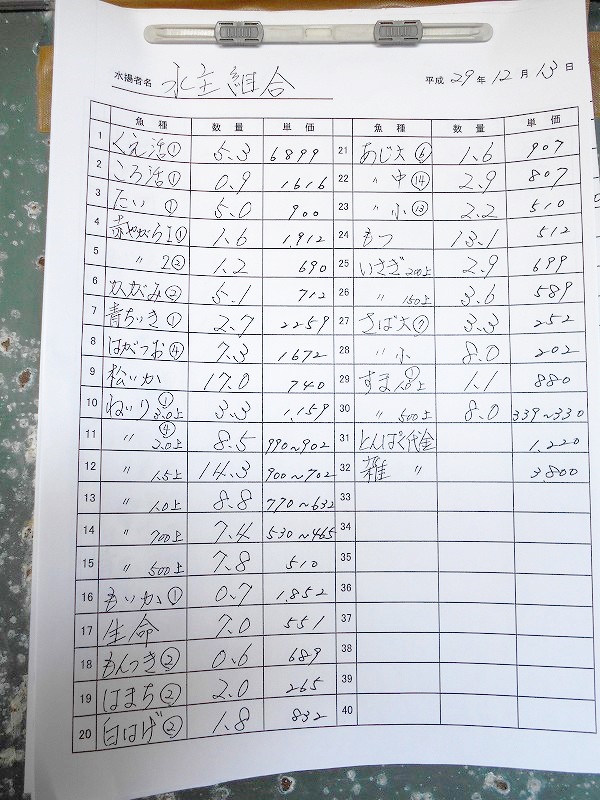 水揚者名 水主組合 平成 29年 12月 13日
魚種 数量 単価
1 くえ活① 5.3 6899
2 ころ活① 0.9 1616
3 たい ① 5.0 900
4 赤やがら1① 1.6 1,912
5 〃 2② 1.2 690
6 かがみ② 5.1 712
7 青ちぃき① 2.7 2259
8 はがつお④ 7.3 1672
9 松いか 17.0 740
10 ねいり① 3.0上 3.3 1,159
11 〃 ④ 2.0上 8.5 990〜902
12 〃 1.5上 14.3 900〜702
13 〃 1.0上 8.8 770〜632
14 〃 700上 7.4 530〜465
15 〃 500上 7.8 510
16 もいか① 0.7 1,852
17 生命 7.0 551
18 もんつき② 0.6 689
19 はまち② 2.0 265
20 白はげ② 1.8 832
魚種 数量 単価
21 あじ大⑥ 1.6 907
22 〃 中⑭ 2.9 807
23 〃 小⑬ 2.2 510
24 もつ 13.1 512
25 いさぎ200上 2.9 699
26 〃 150上 3.6 589
27 さば大⑦ 3.3 252
28 〃 小 8.0 202
29 すま① 1.0上 1.1 880
30 〃 500上 8.0 339〜330
31 とんぼく代金 1,220
32 雑 〃 3,800
33
34
35
36
37
38
39
40